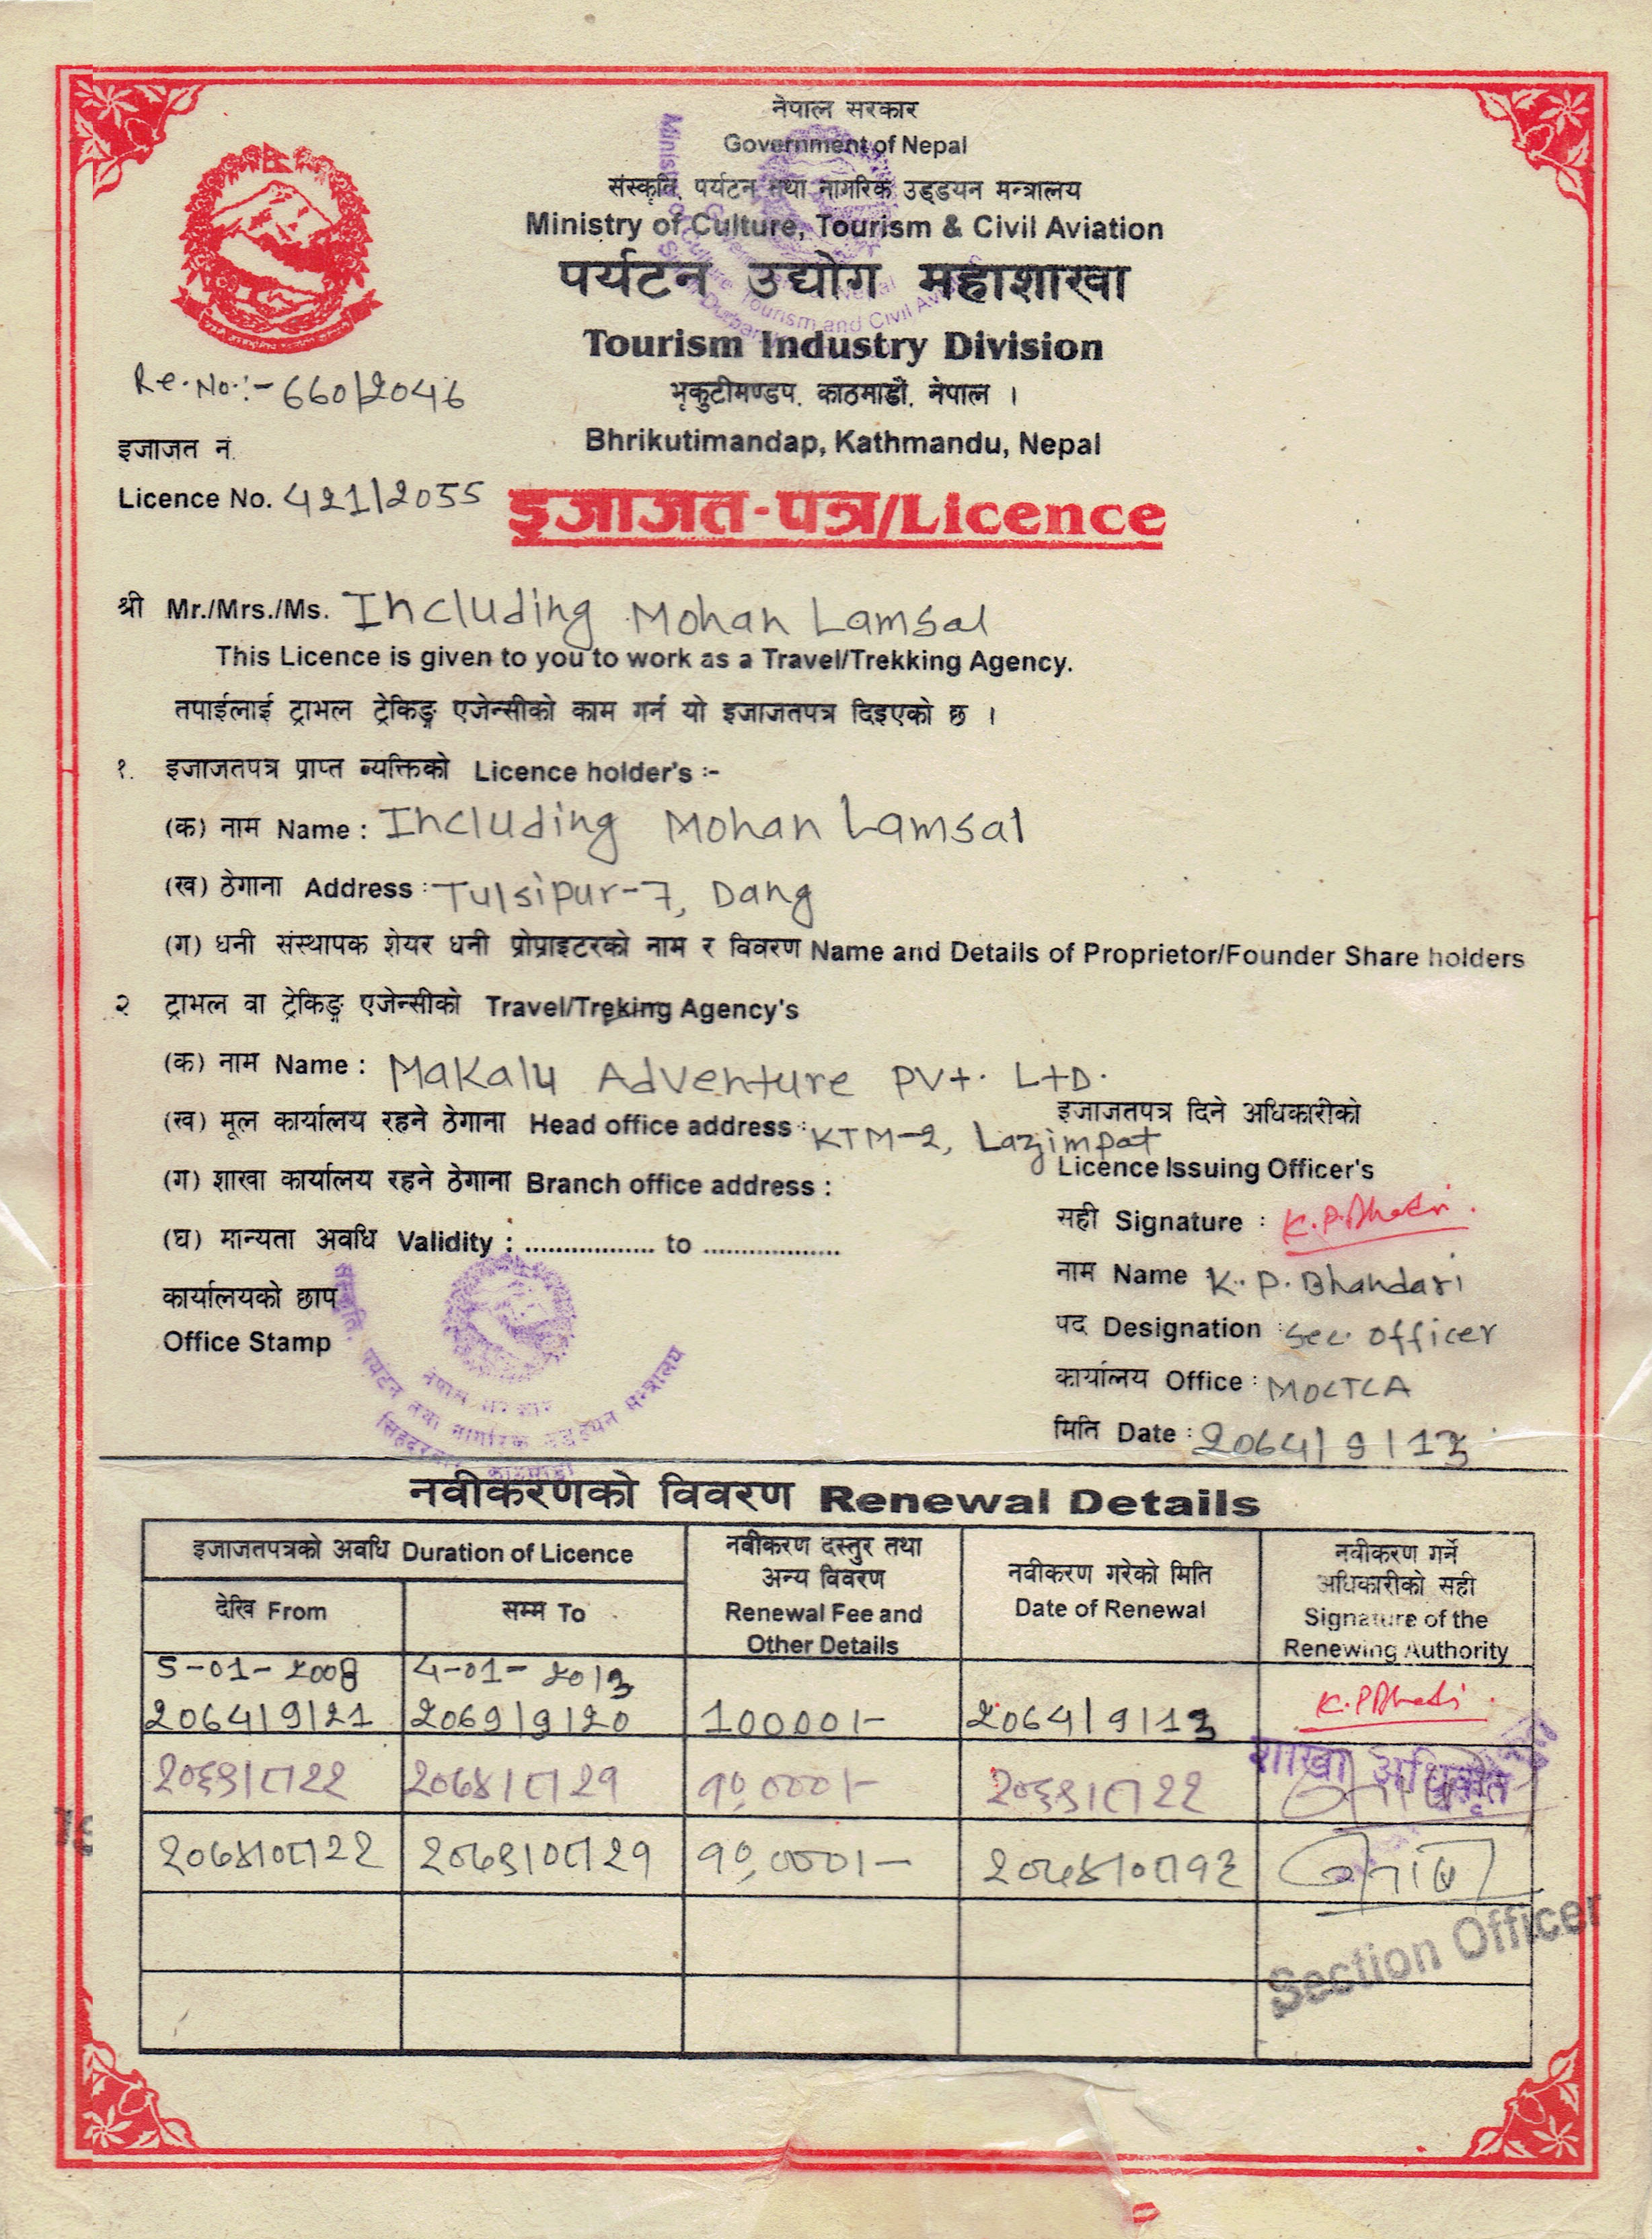 नेपाल सरकार
Government of Nepal
संस्कृति, पर्यटन तथा नागरिक उड्डयन मन्त्रालय
Ministry of Culture, Tourism & Civil Aviation
पर्यटन उद्योग महाशाखा
Tourism Industry Division
Re.No.:- 660/2046
भृकुटीमण्डप, काठमाडौं, नेपाल ।
इजाजत नं.
Bhrikutimandap, Kathmandu, Nepal
Licence No. 421/2055
इजाजत-पत्र/Licence
श्री Mr./Mrs./Ms. Including Mohan Lamsal
This Licence is given to you to work as a Travel/Trekking Agency.
तपाईलाई ट्राभल ट्रेकिङ्ग एजेन्सीको काम गर्न यो इजाजतपत्र दिइएको छ ।
१. इजाजतपत्र प्राप्त व्यक्तिको Licence holder's :-
(क) नाम Name : Including Mohan Lamsal
(ख) ठेगाना Address : Tulsipur-7, Dang
(ग) धनी संस्थापक शेयर धनी प्रोप्राइटरको नाम र विवरण Name and Details of Proprietor/Founder Share holders
२ ट्राभल वा ट्रेकिङ्ग एजेन्सीको Travel/Treking Agency's
(क) नाम Name : Makalu Adventure Pvt. Ltd.
(ख) मूल कार्यालय रहने ठेगाना Head office address : KTM-2, Lazimpat
(ग) शाखा कार्यालय रहने ठेगाना Branch office address :
(घ) मान्यता अवधि Validity : ................. to ..................
कार्यालयको छाप
Office Stamp
नेपाल सरकार
संस्कृति, पर्यटन तथा नागरिक उड्डयन मन्त्रालय
इजाजतपत्र दिने अधिकारीको
Licence Issuing Officer's
सही Signature :
नाम Name K. P. Bhandari
पद Designation : Sec. Officer
कार्यालय Office : MOCTCA
मिति Date : 2064/9/13
नवीकरणको विवरण Renewal Details
इजाजतपत्रको अवधि Duration of Licence
देखि From
सम्म To
नवीकरण दस्तुर तथा
अन्य विवरण
Renewal Fee and
Other Details
नवीकरण गरेको मिति
Date of Renewal
नवीकरण गर्ने
अधिकारीको सही
Signature of the
Renewing Authority
5-01-2008 4-01-2013
2064/9/21 2069/9/20 10000/- 2064/9/13
२०६९।८।२२ २०७४।८।२१ १०,०००।- २०६९।८।२२
शाखा अधिकृत
२०७४।०८।२२ २०७९।०८।२१ १०,०००।- २०७४।०८।१३
Section Officer